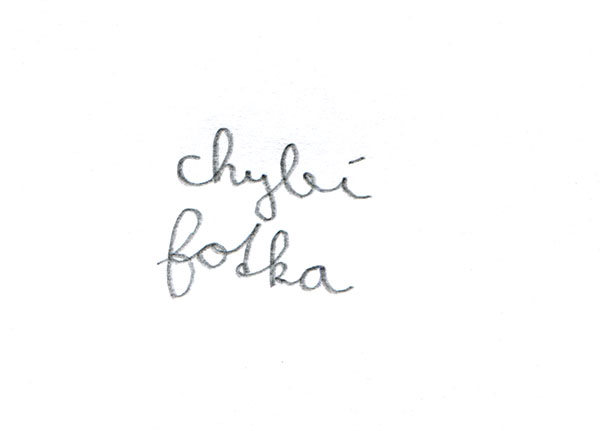 chybí
fotka